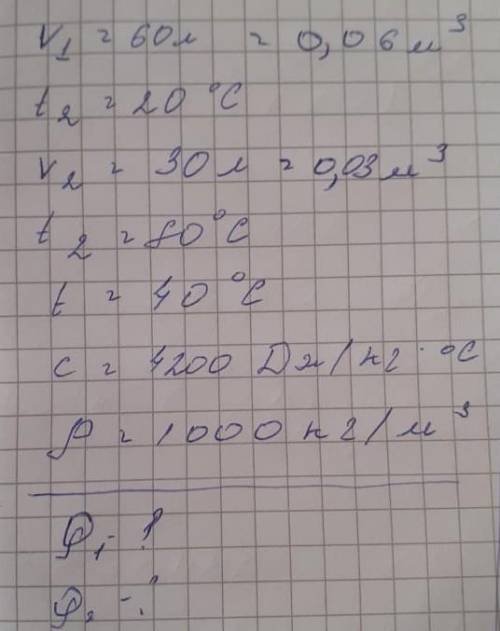 V₁ = 60л = 0,06 м³
t₂ = 20 °C
V₂ = 30 л = 0,03 м³
t₂ = 80°C
t = 40 °C
c = 4200 Дж/кг · °C
ρ = 1000 кг/м³
Q₁ - ?
Q₂ - ?